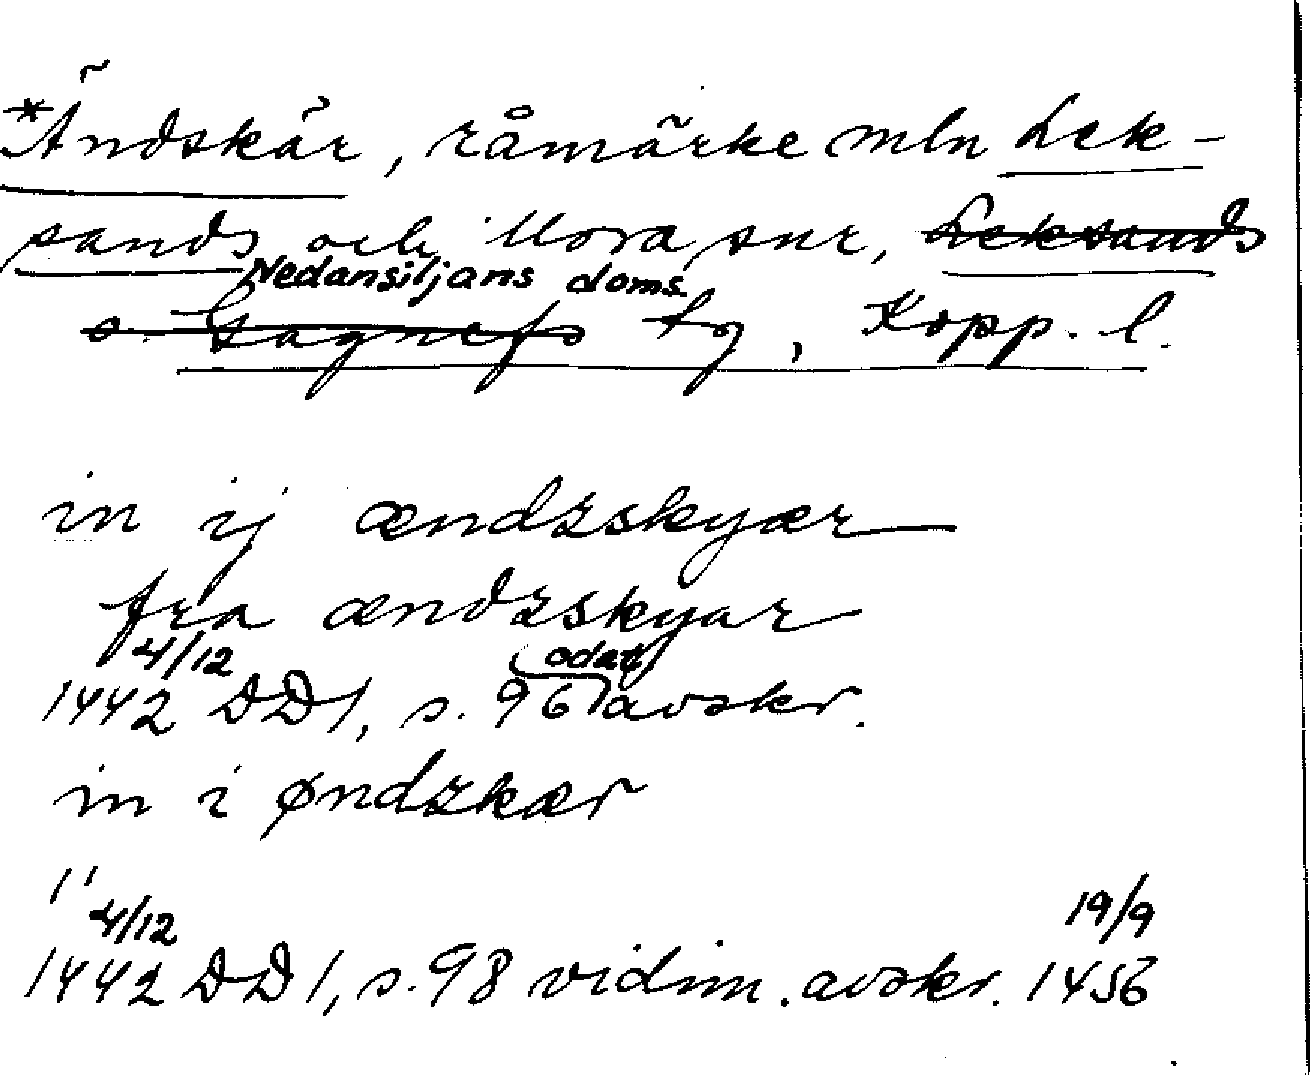 *Ändskär, råmärke mln Lek-
sands och Mora snr, Leksands
Nedansiljans doms.
o. Gagnefs tg, Kopp. l.
in ij ændzskyær
fra ændzskyar
4/12
odat.
1442 DD1, s. 96 avskr.
in i øndzkær
4/12
19/9
1442 DD1, s. 98 vidim. avskr. 1456